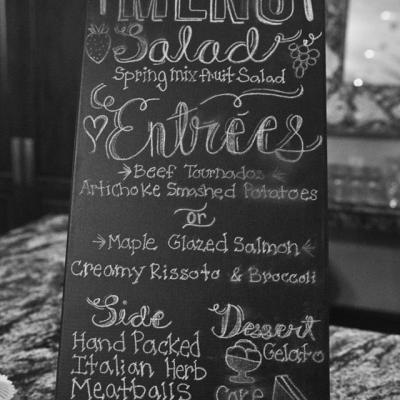 MENU
Salad
Spring mix fruit Salad
Entrées
Beef Tournados
Artichoke Smashed Potatoes
or
Maple Glazed Salmon
Creamy Rissoto & Broccoli
Side
Hand Packed
Italian Herb
Meatballs
Dessert
Gelato
Cake